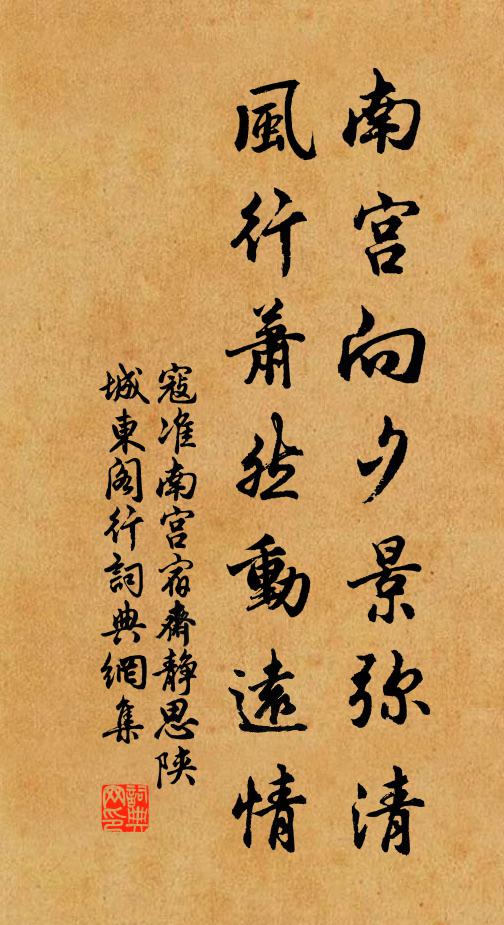 南宫向夕景弥清
風行萧然動遠情
寇准南宫宿齋静思陕
城東阁行詞典網集